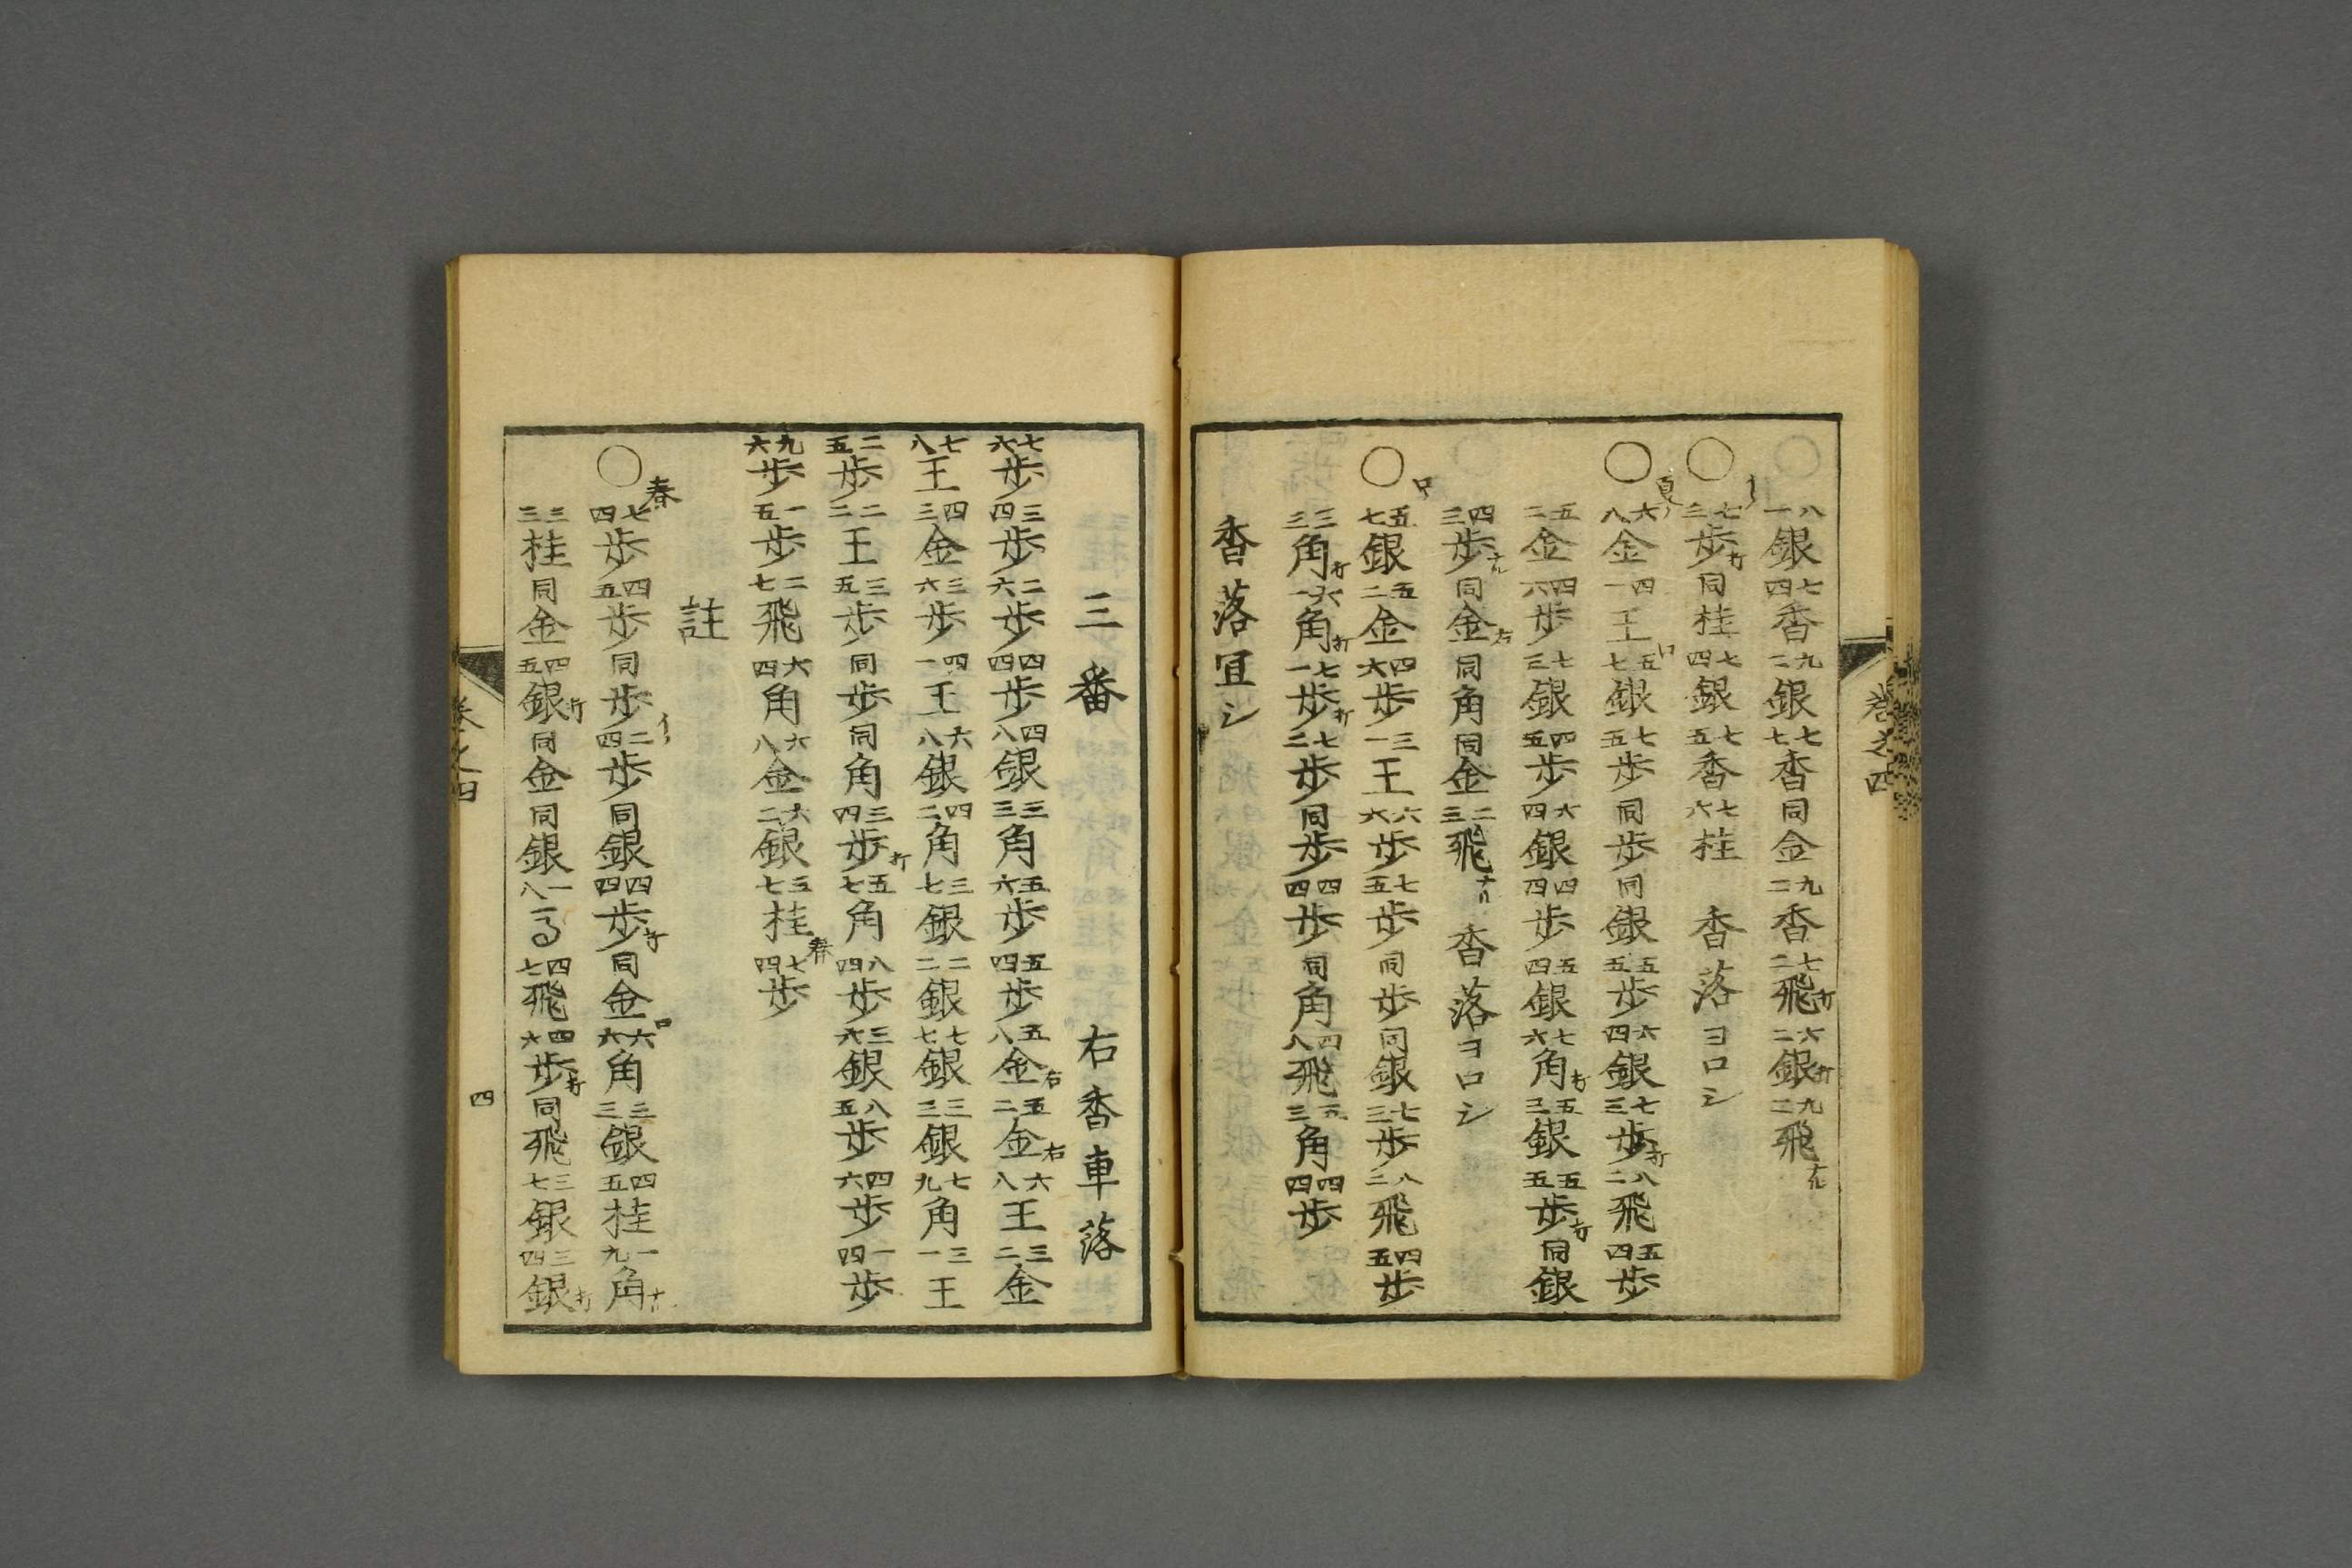 卷之四
八一銀七四香九二銀七七香同金九二香七二飛打六二銀打九二飛ナル
○イ七三歩打同桂七四銀七五香七六桂　香落ヨロシ
○夏六八金四一王ロ五七銀七五歩同歩同銀五五歩六四銀七三歩打八二飛五四歩
五二金四六歩七三銀四五歩六四銀四四歩五四銀七六角打五三銀五五歩打同銀
四三歩ナル同金右同角同金二三飛ナル　香落ヨロシ
○ロ五七銀五二金四六歩三一王六六歩七五歩同歩同銀七三歩八二飛四五歩
三三角打六一角打七一歩打七二歩同歩四四歩同角四八飛五三角四四歩
香落宜シ
三番　右香車落
七六歩三四歩二六歩四四歩四八銀三三角五六歩五四歩五八金右五二金右六八王三二金
七八王四三金三六歩四一王六八銀四二角三七銀二二銀七七銀三三銀七九角三一王
二五歩二二王三五歩同歩同角三四歩打五七角八四歩三六銀八五歩四六歩一四歩
九六歩一五歩二七飛六四角六八金六二銀三七桂春七四歩
註
○春七四歩四五歩同歩イ二四歩同銀四四歩打同金ロ六六角三三銀四五桂一九角ナル
三三桂同金四五銀打同金同銀一八馬四七飛四六歩打同飛三七銀三四銀打
卷之四
四